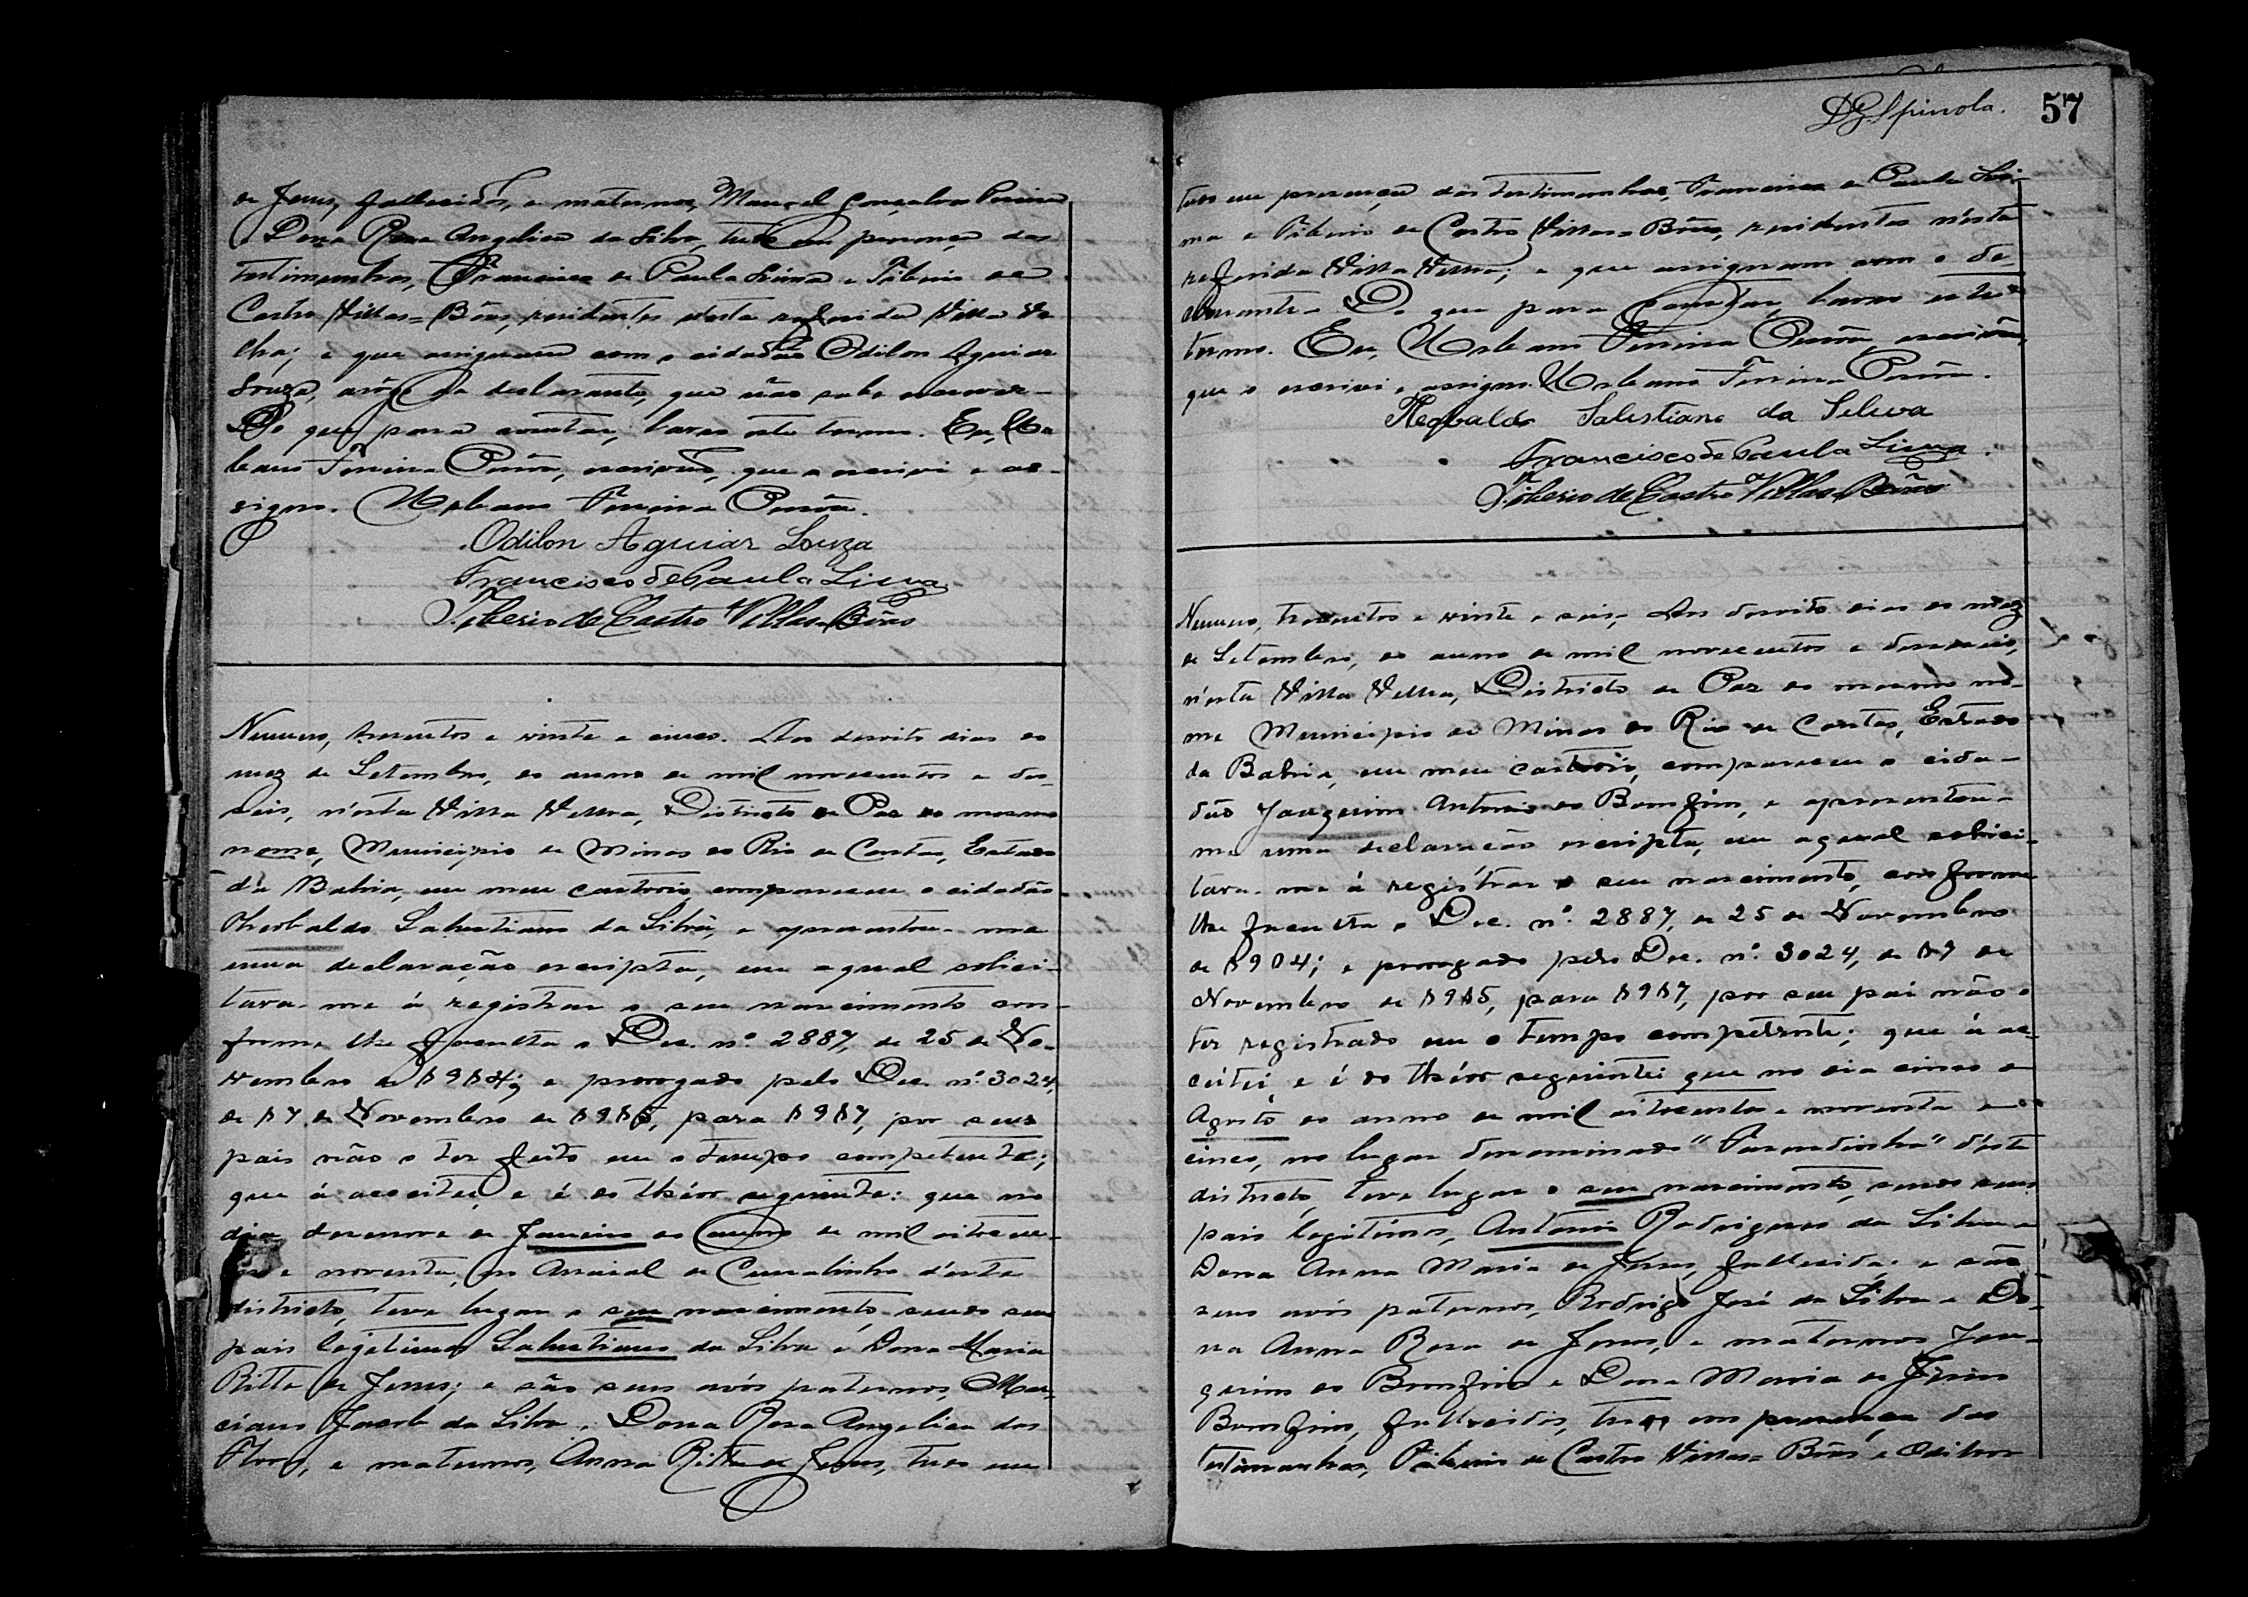 de Jesus, fallecidos, e maternos, Manoel Gonçalves Pereira
e Dona Rosa Angelica da Silva, tudo em presença das
testimunhas, Francisco de Paula Lima e Tiberio de
Castro Villas=Bôas, residentes nesta referida Villa Ve
lha; e que assignam com o cidadão Odilon Aguiar
Souza, arôgo da declarante, que não sabe escrever-
Do que para constar, lavro este termo. Eu, Ur
bano Ferreira escrivão, que o escrivi e as-
signo. Urbano Ferreira
Odilon Aguiar Souza
Francisco de Paula Lima
Tiberio de Castro Villas Bôas
Numero, tresentos e vinte e cinco. Aos desoito dias do
mez de Setembro, do anno de mil novecentos e des-
seis, n'esta Villa Velha, Districto de Paz do mesmo
nome, Municipio de Minas do Rio de Contas, Estado
da Bahia, em meu cartorio, compareceu o cidadão
Theobaldo Salustiano da Silva, e apresentou-me
uma declaração escripta, em a qual solici-
tava-me á registrar o seu nascimento con-
forme lhe faculta o Dec. nº 2887, de 25 de No-
vembro de 1914; e prorogado pelo Dec. nº 3024,
de 17 de Novembro de 1915, para 1917, por seus
pais não o ter feito em o tempo competente;
que á acceitei, e é do theôr seguinte: que no
dia desenove de Janeiro do anno de mil oitocen-
tos e noventa, no Arraial de Curralinho d'este
districto, teve lugar o seu nascimento, sendo seus
pais legitimos Salustiano da Silva e Dona Maria
Ritta de Jesus; e são seus avós paternos, Mar-
ciano Jacob da Silva e Dona Rosa Angelica das
Flores, e maternos, Anna Ritta de Jesus, tudo em
DG Spinola. 57
tudo em presença das testimunhas, Francisco de Paula Li-
ma e Tiberio de Castro Villas=Bôas, residentes n'esta
referida Villa Velha; e que assignam com o de
clarante. Do que para constar, lavro este
termo. Eu, Urbano Ferreira escrivão,
que o escrivi e assigno. Urbano Ferreira
Theobaldo Salustiano da Silva
Francisco de Paula Lima
Tiberio de Castro Villas Bôas
Numero, tresentos e vinte e seis. Aos desoito dias do mez
de Setembro, do anno de mil novecentos e desseseis,
n'esta Villa Velha, Districto de Paz do mesmo no-
me Municipio de Minas do Rio de Contas, Estado
da Bahia, em meu cartorio, compareceu o cida-
dão Joaquim Antonio do Bomfim, e apresentou-
me uma declaração escripta, em a qual solici-
tava-me á registrar o seu nascimento, conforme
lhe faculta o Dec. nº 2887, de 25 de Novembro
de 1904; e prorogado pelo Dec. nº 3024, de 17 de
Novembro de 1915, para 1917, por seu pai não o
ter registrado em o tempo competente; que á ac-
ceitei, e é do theôr seguinte: que no dia cinco de
Agosto do anno de mil oitocentos e noventa e
cinco, no lugar denominado d'este
districto, teve lugar o seu nascimento, sendo seus
pais legitimos, Antonio Rodrigues da Silva e
Dona Anna Maria de Jesus, fallecida; e são
seus avós paternos, Rodrigo José da Silva e Do-
na Anna Rosa de Jesus, e maternos Joa-
quim do Bomfim e Dona Maria de Jesus
Bomfim, fallecidos, tudo em presença das
testimunhas, Tiberio de Castro Villas=Bôas e Odilon